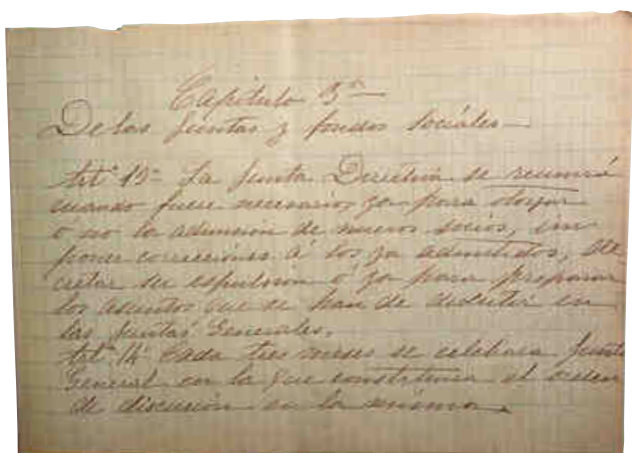 Capitulo 3º
De las Juntas y fondos sociales
Art º 13º La Junta Directiva se reunirá
cuando fuere necesario, ya para otorgar
o no la admision de nuevos socios, im
poner correcciones á los ya admitidos, de
cretar su espulsion ó ya para preparar
los asuntos que se han de discutir en
las Juntas Generales.
Art º 14 Cada tres meses se celebrara Junta
General en la que constituira el orden
de discusion en la misma.